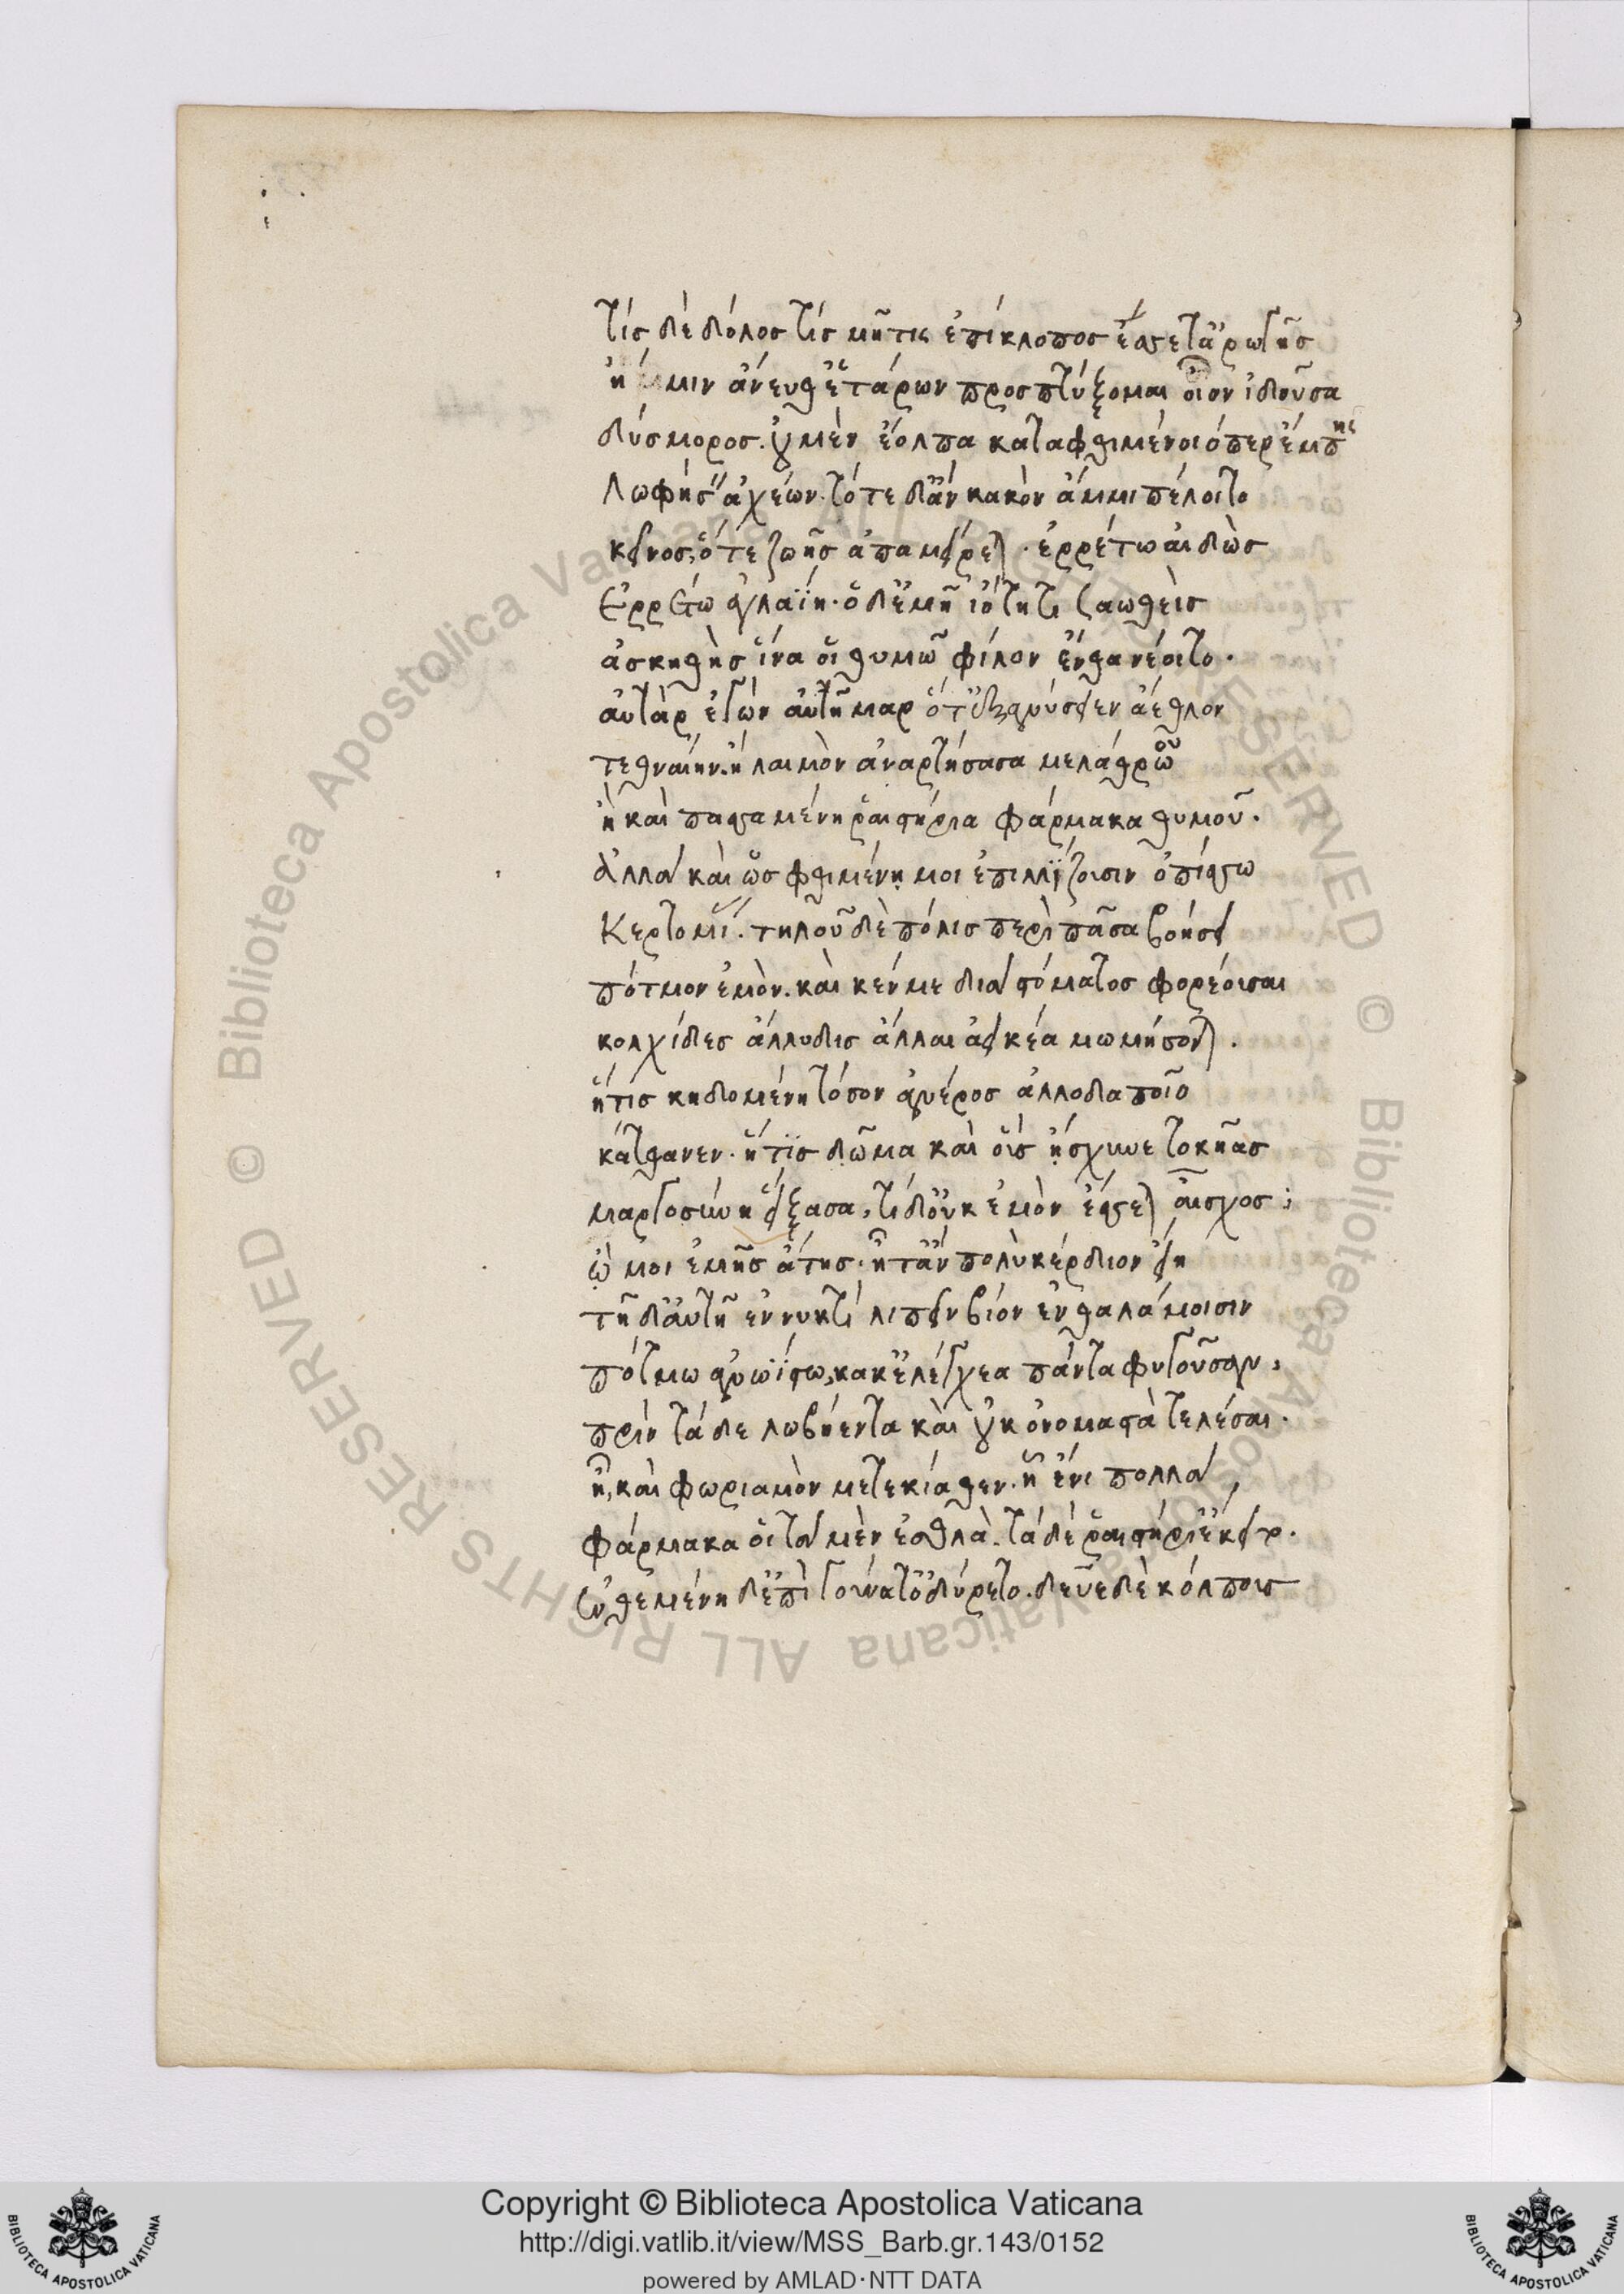 τίς δὲ δόλος τίς μῆτις ἐπίκλοπος ἔσσετ' ἀρωγῆς
ἤ μιν ἄνευθ' ἑτάρων προσπτύξομαι οἶον ἰδοῦσα
δύσμορος. οὐ μὲν ἔολπα καταφθιμένοιό περ ἔμπης
λωφήσειν ἀχέων. τότε δ' ἂν κακὸν ἄμμι πέλοιτο
κεῖνος, ὅτε ζωῆς ἀπαμείρεται. ἐρρέτω αἰδὼς
ἐρρέτω ἀγλαΐη. ὁ δ' ἐμῇ ἰότητι σαωθεὶς
ἀσκηθὴς ἵνα οἱ θυμῷ φίλον ἔνθα νέοιτο.
αὐτὰρ ἐγὼν αὐτῆμαρ ὅτ' ἐξανύσειεν ἄεθλον
τεθναίην. ἢ λαιμὸν ἀναρτήσασα μελάθρῳ
ἢ καὶ πασσαμένη ῥαιστήρια φάρμακα θυμοῦ.
ἀλλὰ καὶ ὣς φθιμένῃ μοι ἐπιλλίζουσιν ὀπίσσω
κερτομίας. τηλοῦ δὲ πόλις περὶ πᾶσα βοήσει
πότμον ἐμόν. καὶ κέν με διὰ στόματος φορέουσαι
κολχίδες ἄλλυδις ἄλλαι ἀεικέα μωμήσονται.
ἥτις κηδομένη τόσον ἀνέρος ἀλλοδαποῖο
κάτθανεν. ἥτις δῶμα καὶ οὓς ᾔσχυνε τοκῆας
μαργοσύνῃ εἴξασα, τί δ' οὐκ ἐμὸν ἔσσεται αἶσχος;
ᾤ μοι ἐμῆς ἄτης. ἦ τ' ἂν πολὺ κέρδιον εἴη
τῇδ' αὐτῇ ἐν νυκτὶ λιπεῖν βίον ἐν θαλάμοισιν
πότμῳ ἀνωίστῳ, κάκ' ἐλέγχεα πάντα φυγοῦσαν,
πρὶν τάδε λωβήεντα καὶ οὐκ ὀνομαστὰ τελέσαι.
ἦ, καὶ φωριαμὸν μετεκίαθεν. ᾗ ἔνι πολλὰ
φάρμακά οἱ τὰ μὲν ἐσθλὰ. τὰ δὲ ῥαιστήρι' ἔκειτο.
ἐνθεμένη δ' ἐπὶ γούνατ' ὀδύρετο. δεῦε δὲ κόλπους
Copyright © Biblioteca Apostolica Vaticana
http://digi.vatlib.it/view/MSS_Barb.gr.143/0152
powered by AMLAD·NTT DATA